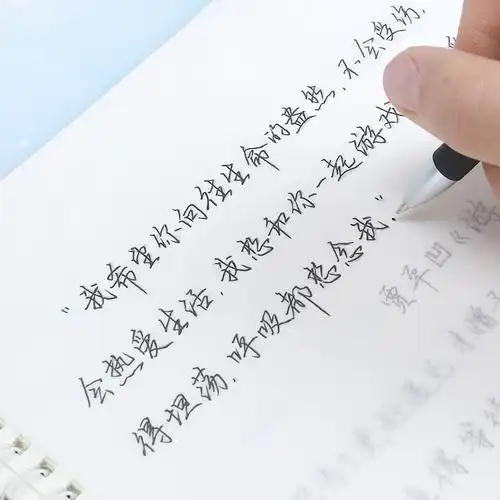 "我希望你向往生命的盎然,不会受伤,
会热爱生活,我想和你一起游戏
得坦荡,呼吸都想念我."
贾平凹《游